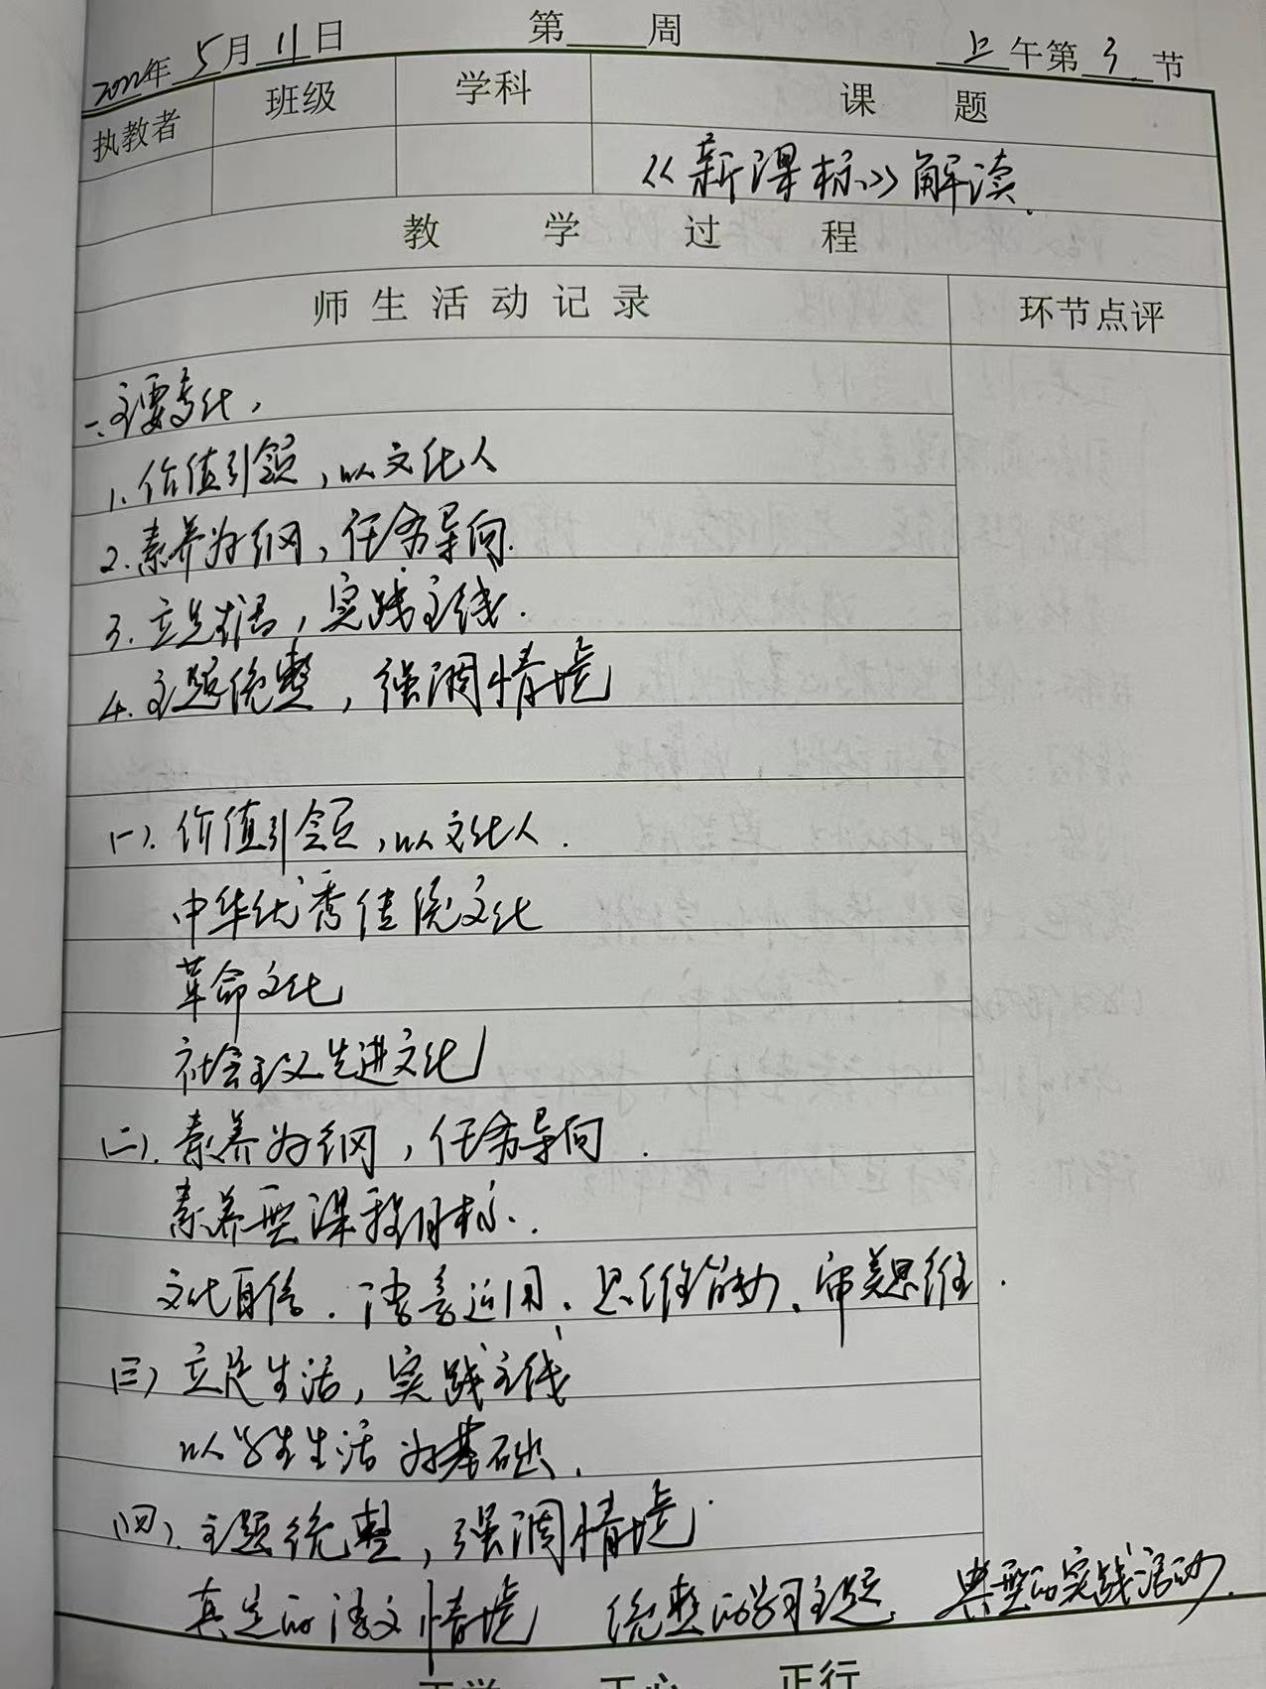 2022年 5月 11日 第 周 上午第 3 节
执教者 班级 学科 课 题
《新课标》解读.
教 学 过 程
师 生 活 动 记 录 环节点评
一、主要变化,
1. 价值引领,以文化人
2. 素养为纲,任务导向.
3. 立足生活,实践主线.
4. 主题统整,强调情境
(一). 价值引领,以文化人.
中华优秀传统文化
革命文化
社会主义先进文化
(二). 素养为纲,任务导向.
素养型课程目标.
文化自信.语言运用、思维能力、审美思维.
(三) 立足生活,实践主线
以学生生活为基础.
(四). 主题统整,强调情境.
真实的语文情境 统整的学习主题. 典型的实践活动.
正学 正心 正行